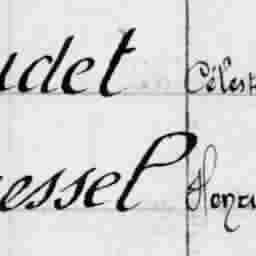 udet Célest
essel Honor